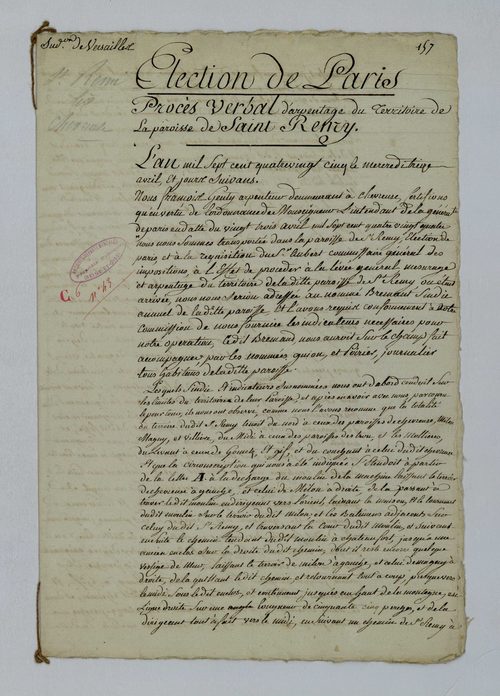 Sud.on de Versailles
157
St Remi
lès
Chevreuse
Election de Paris
Procès Verbal d'arpentage du Territoire de
La paroisse de Saint Remy.
L'an mil sept cent quatrevingt cinq le mercredi treize
avril, et jours suivans.
Nous françois arpenteur demeurant à chevreuse, certifions
qu'en vertu de l'ordonnance de Monseigneur L'intendant de la généralité
de paris en datte du vingt trois avril mil sept cent quatre vingt quatre
nous nous sommes transportés dans la paroisse de St Remy, Election de
paris et à la requisition du Sr Aubert commissaire général des
impositions, à L'Effet de procéder à la levée général mesurage
et arpentage du territoire de laditte paroisse de St Remy ou étant
arrivés, nous nous serions adressés au nommé Bremant Sindic
annuel de laditte paroisse et l'avons requis conformément à notre
Commission de nous fournir les indicateurs necessaires pour
notre opération, ledit Bremant nous auroit sur le champ fait
accompagner par les nommés et journalier
tous habitans de laditte paroisse.
Lesquels Sindic et indicateurs susnommés nous ont d'abord conduit sur
les limites du territoire de leur Paroisse, et après en avoir avec nous parcouru
le pourtour, ils nous ont observé, comme nous l'avons reconnu que la totalité
du terrein dudit St Remy tenoit du nord à ceux des paroisses de chevreuse, Milon
Magny, et villiers, du Midi à ceux des paroisses de et les molières,
du Levant à ceux de Gometz et Gif, et du couchant à celui dudit chevreuse
Et que la circonscription qui nous à été indiquée s'étendoit à partir
de la Lettre A à la décharge du moulin de la laissant le terroir
de chevreuse à gauche, et celui de Milon à droite, de la passant au
travers dudit moulin en dirigeant vers l'orient, laissant la maison, et le tournant
dudit moulin sur le terroir dudit Milon, et les Batimens adjacents sur
celuy dudit St Remy, et traversant la Cour dudit moulin, et suivant
ensuite le chemin tendant dudit moulin à chateaufort, jusqu'à une
ancien enclos sur la droite dudit chemin, dont il reste encore quelque
vestige de Mur, laissant le terroir de milon à gauche, et celui de magny à
droite, de la quittant le dit chemin et retournant tout à coup, presque vers
le midi sous le dit enclos, et continuant jusques au haut de la montagne, en
Ligne droite sur une longueur de cinquante cinq perches, et de la
dirigeant tout à fait vers le midi, en suivant un chemin de St Remy à
C. 6
n° 43